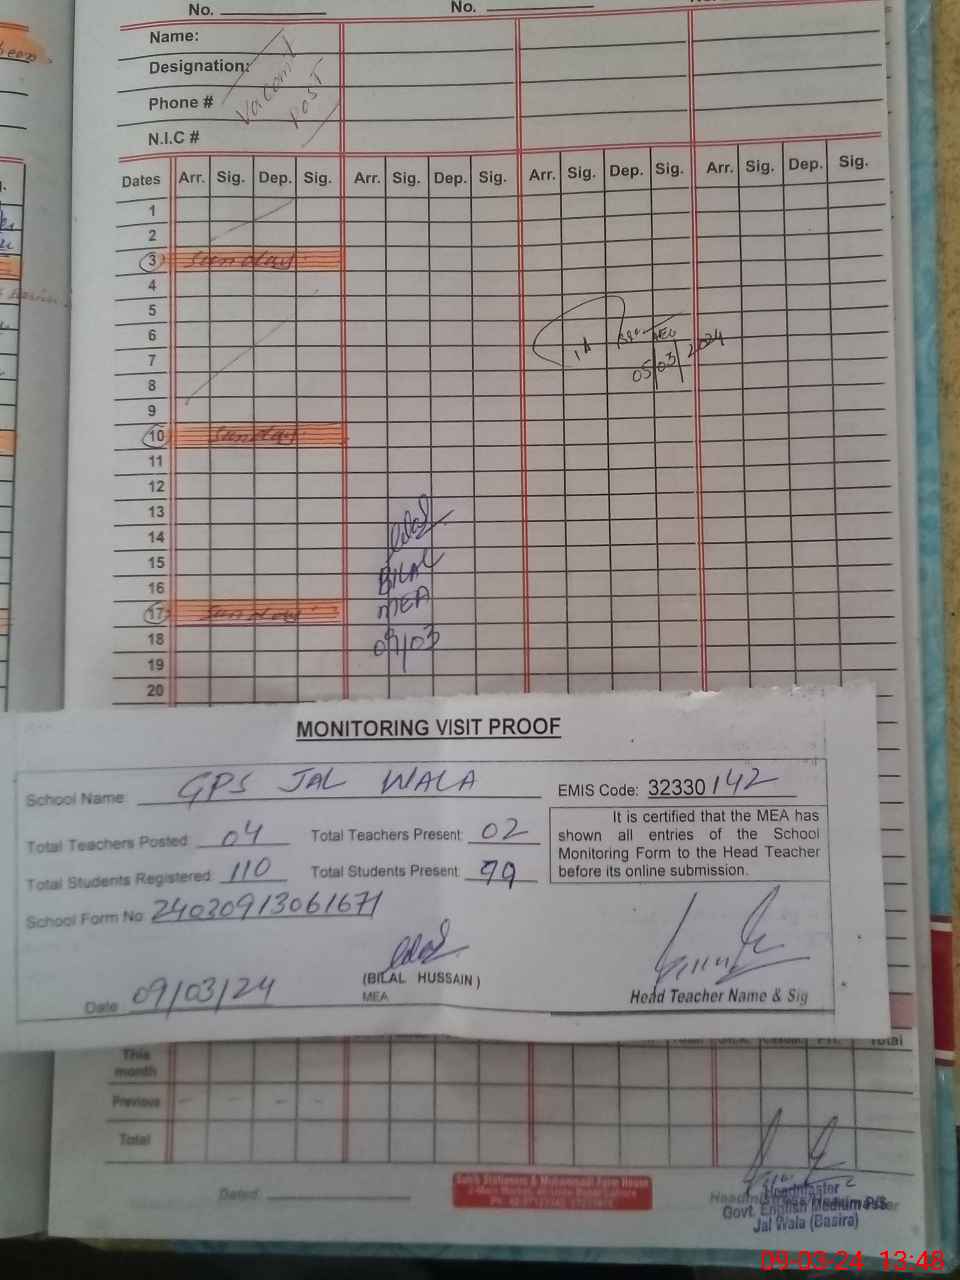 No.
No.
Name:
Designation:
Phone #
N.I.C #
Vacant
Post
Dates Arr. Sig. Dep. Sig. Arr. Sig. Dep. Sig. Arr. Sig. Dep. Sig. Arr. Sig. Dep. Sig.
1
2
3 Sunday
4
5
6
7
05/03/2024
8
9
10 Sunday
11
12
13
14
15
BILAL
16
MEA
17 Sunday
18
09/03
19
20
MONITORING VISIT PROOF
School Name: GPS JAL WALA
EMIS Code: 32330142
Total Teachers Posted: 04
Total Teachers Present: 02
Total Students Registered: 110
Total Students Present: 99
School Form No: 24030913061671
It is certified that the MEA has
shown all entries of the School
Monitoring Form to the Head Teacher
before its online submission.
(BILAL HUSSAIN)
MEA
Date 09/03/24
Head Teacher Name & Sig
Total
This
month
Previous
Total
Dated:
Headmaster
Govt. English Medium P/S
Jal Wala (Basira)
09-03-24 13:48